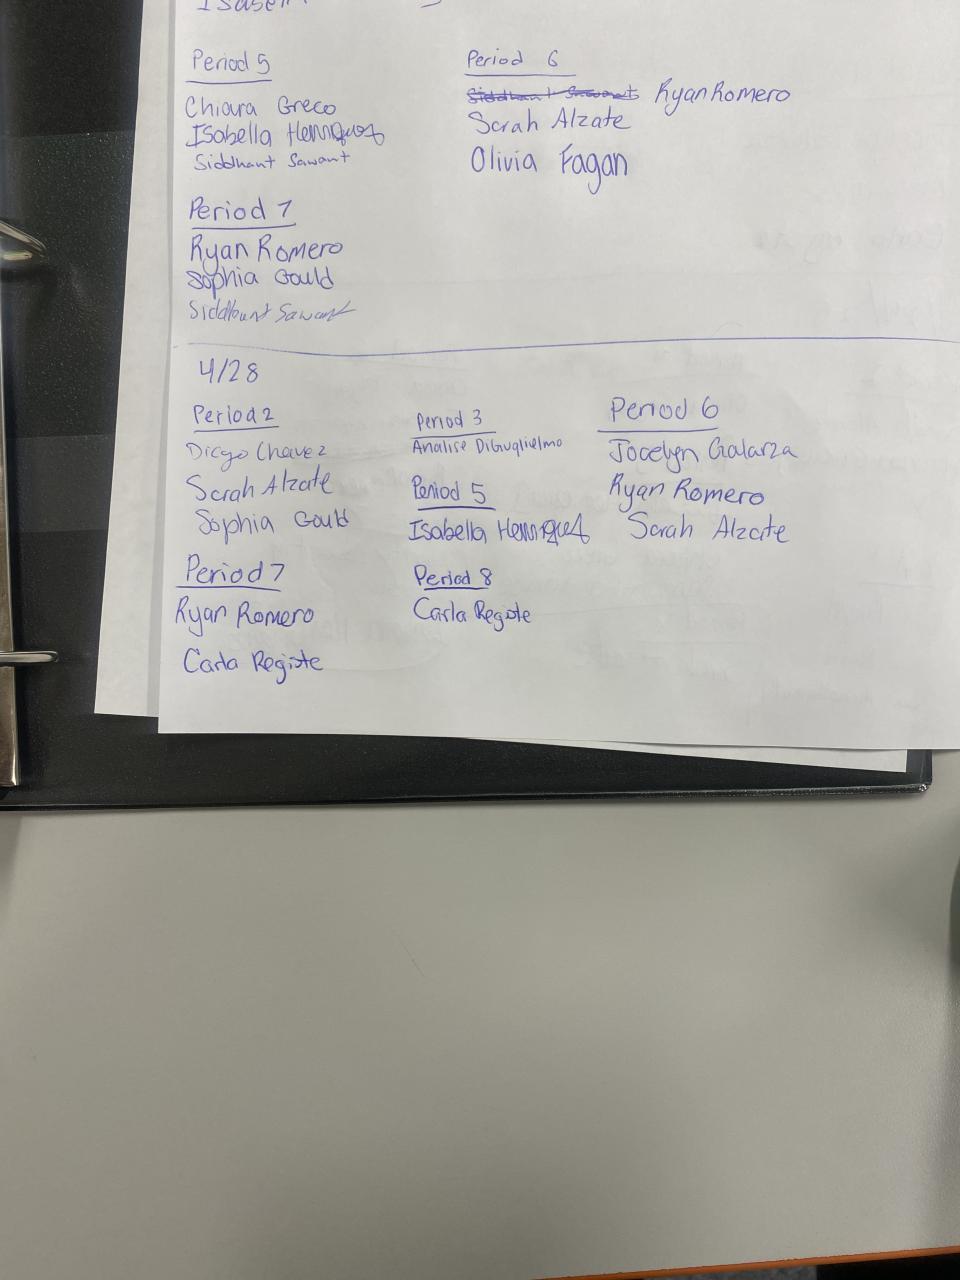 Period 5
Chiara Greco
Isabella Henriquez
Siddhant Sawant
Period 6
Siddhant Sawant Ryan Romero
Sarah Alzate
Olivia Fagan
Period 7
Ryan Romero
Sophia Gould
Siddhant Sawant
4/28
Period 2
Diego Chavez
Sarah Alzate
Sophia Gould
Period 3
Analise DiGuglielmo
Period 5
Isabella Henriquez
Period 6
Jocelyn Galarza
Ryan Romero
Sarah Alzate
Period 7
Ryan Romero
Carla Registe
Period 8
Carla Registe